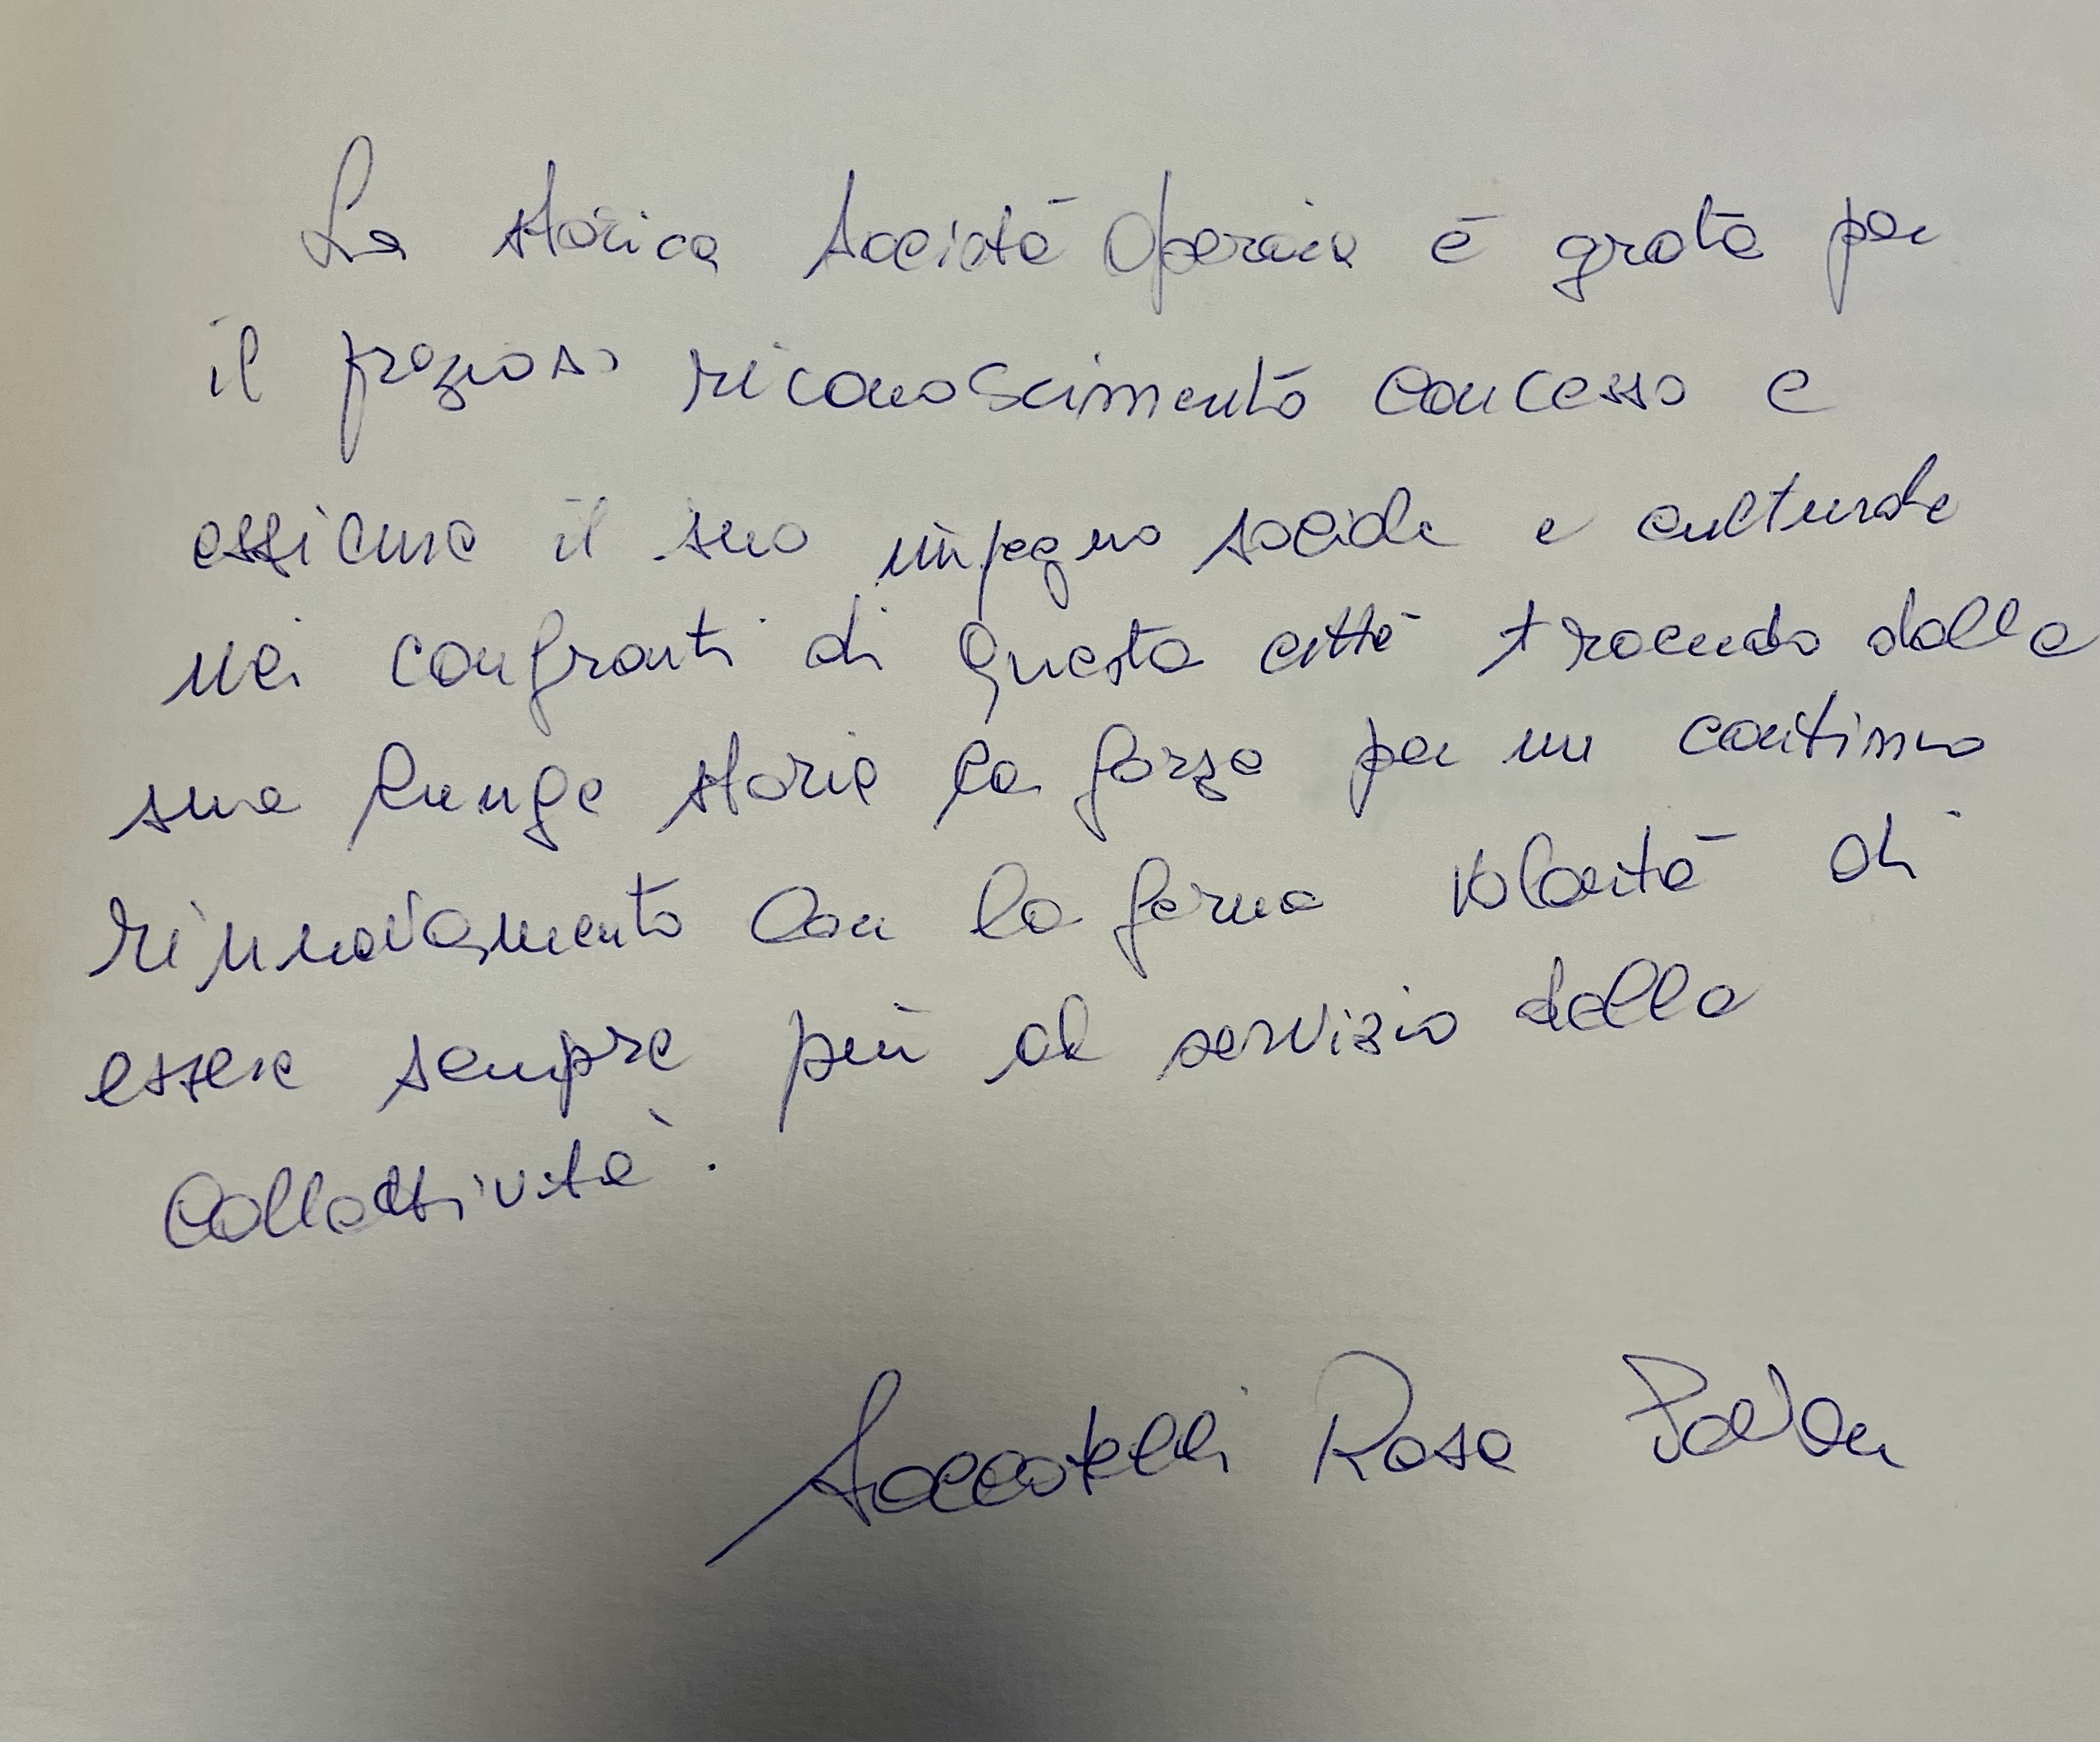 La storica Società Operaia è grata per
il prezioso riconoscimento concesso e
assicura il suo impegno sociale e culturale
nei confronti di questa città traendo dalla
sua lunga storia la forza per un continuo
rinnovamento con la ferma volontà di
essere sempre più al servizio della
collettività.
Rosa